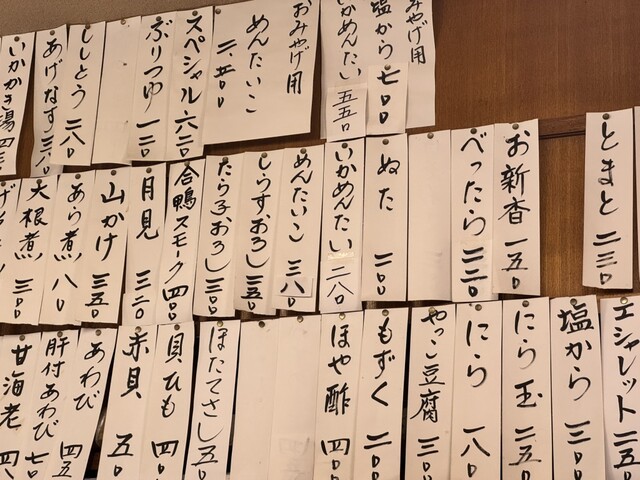 おみやげ用
塩から 七〇〇
いかめんたい 五五〇
おみやげ用
めんたいこ 二、五〇〇
スペシャル 六二〇
ぶりつゆ 一二〇
ししとう 二八〇
あげなす 三八〇
いかかき揚 四
とまと 二三〇
お新香 一五〇
べったら 二二〇
ぬた 二〇〇
いかめんたい 二八〇
めんたいこ 三八〇
しらすおろし 三五〇
たら子おろし 三〇〇
合鴨スモーク 四〇〇
月見 三二〇
山かけ 三五〇
あら煮 八〇
大根煮 三〇〇
エシャレット 二五
塩から 三〇〇
にら玉 二五〇
にら 一八〇
やっこ豆腐 三〇〇
もずく 二〇〇
ほや酢 四〇〇
ほたてさし 五〇
貝ひも 四〇〇
赤貝 五〇
あわび 四五
肝付あわび 七〇
甘海老 四八